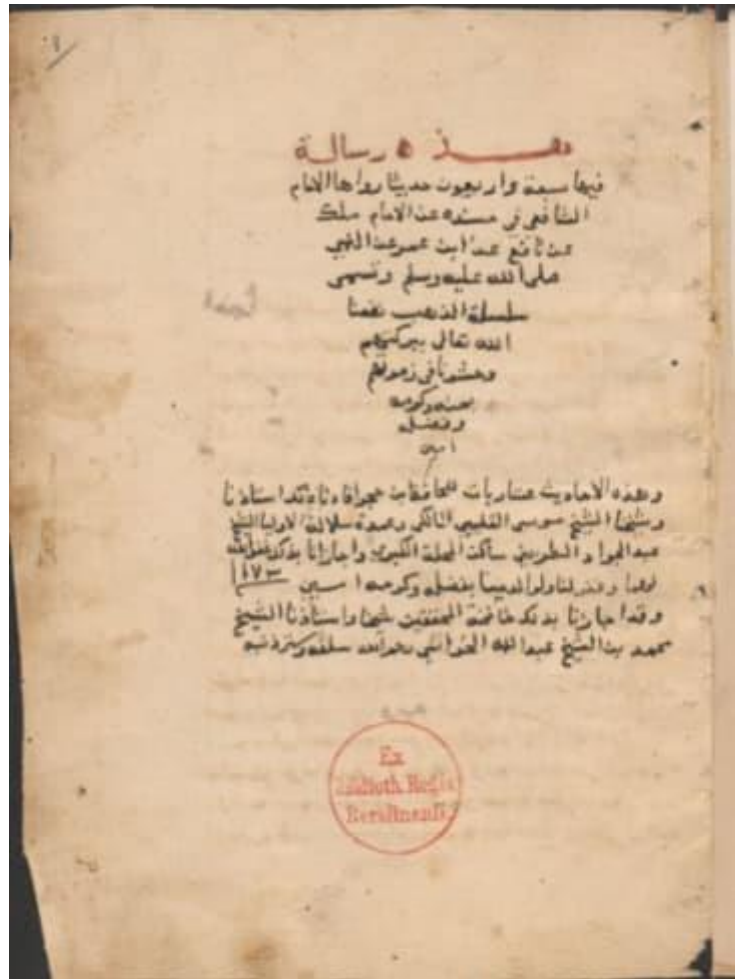 ١
هـــذه رسالة
فيها سبعة واربعون حديثا رواها الامام
الشافعي في مسنده عن الامام ملك
عن نافع عن ابن عمر عن النبي
صلى الله عليه وسلم وتسمى
سلسلة الذهب نفعنا
الله تعالى ببركتهم
وحشرنا في زمرتهم
بمنه وكرمه
وفضله
امين
وهذه الاحاديث عشاريات للحافظ بن حجر افادنا ذلك استاذنا
وشيخنا الشيخ موسى القليبي المالكي وعمدة سلالة الاوليا الشيخ
عبد الجواد الطريني ساكن المحلة الكبرى واجازانا بذلك
لهما وغفر لنا ولوالدينا بفضله وكرمه امين ١١٧٣
وقد اجازنا بذلك خاتمة المحققين شيخنا واستاذنا الشيخ
محمد بن الشيخ عبد الله
Ex
Biblioth. Regia
Berolinensi.